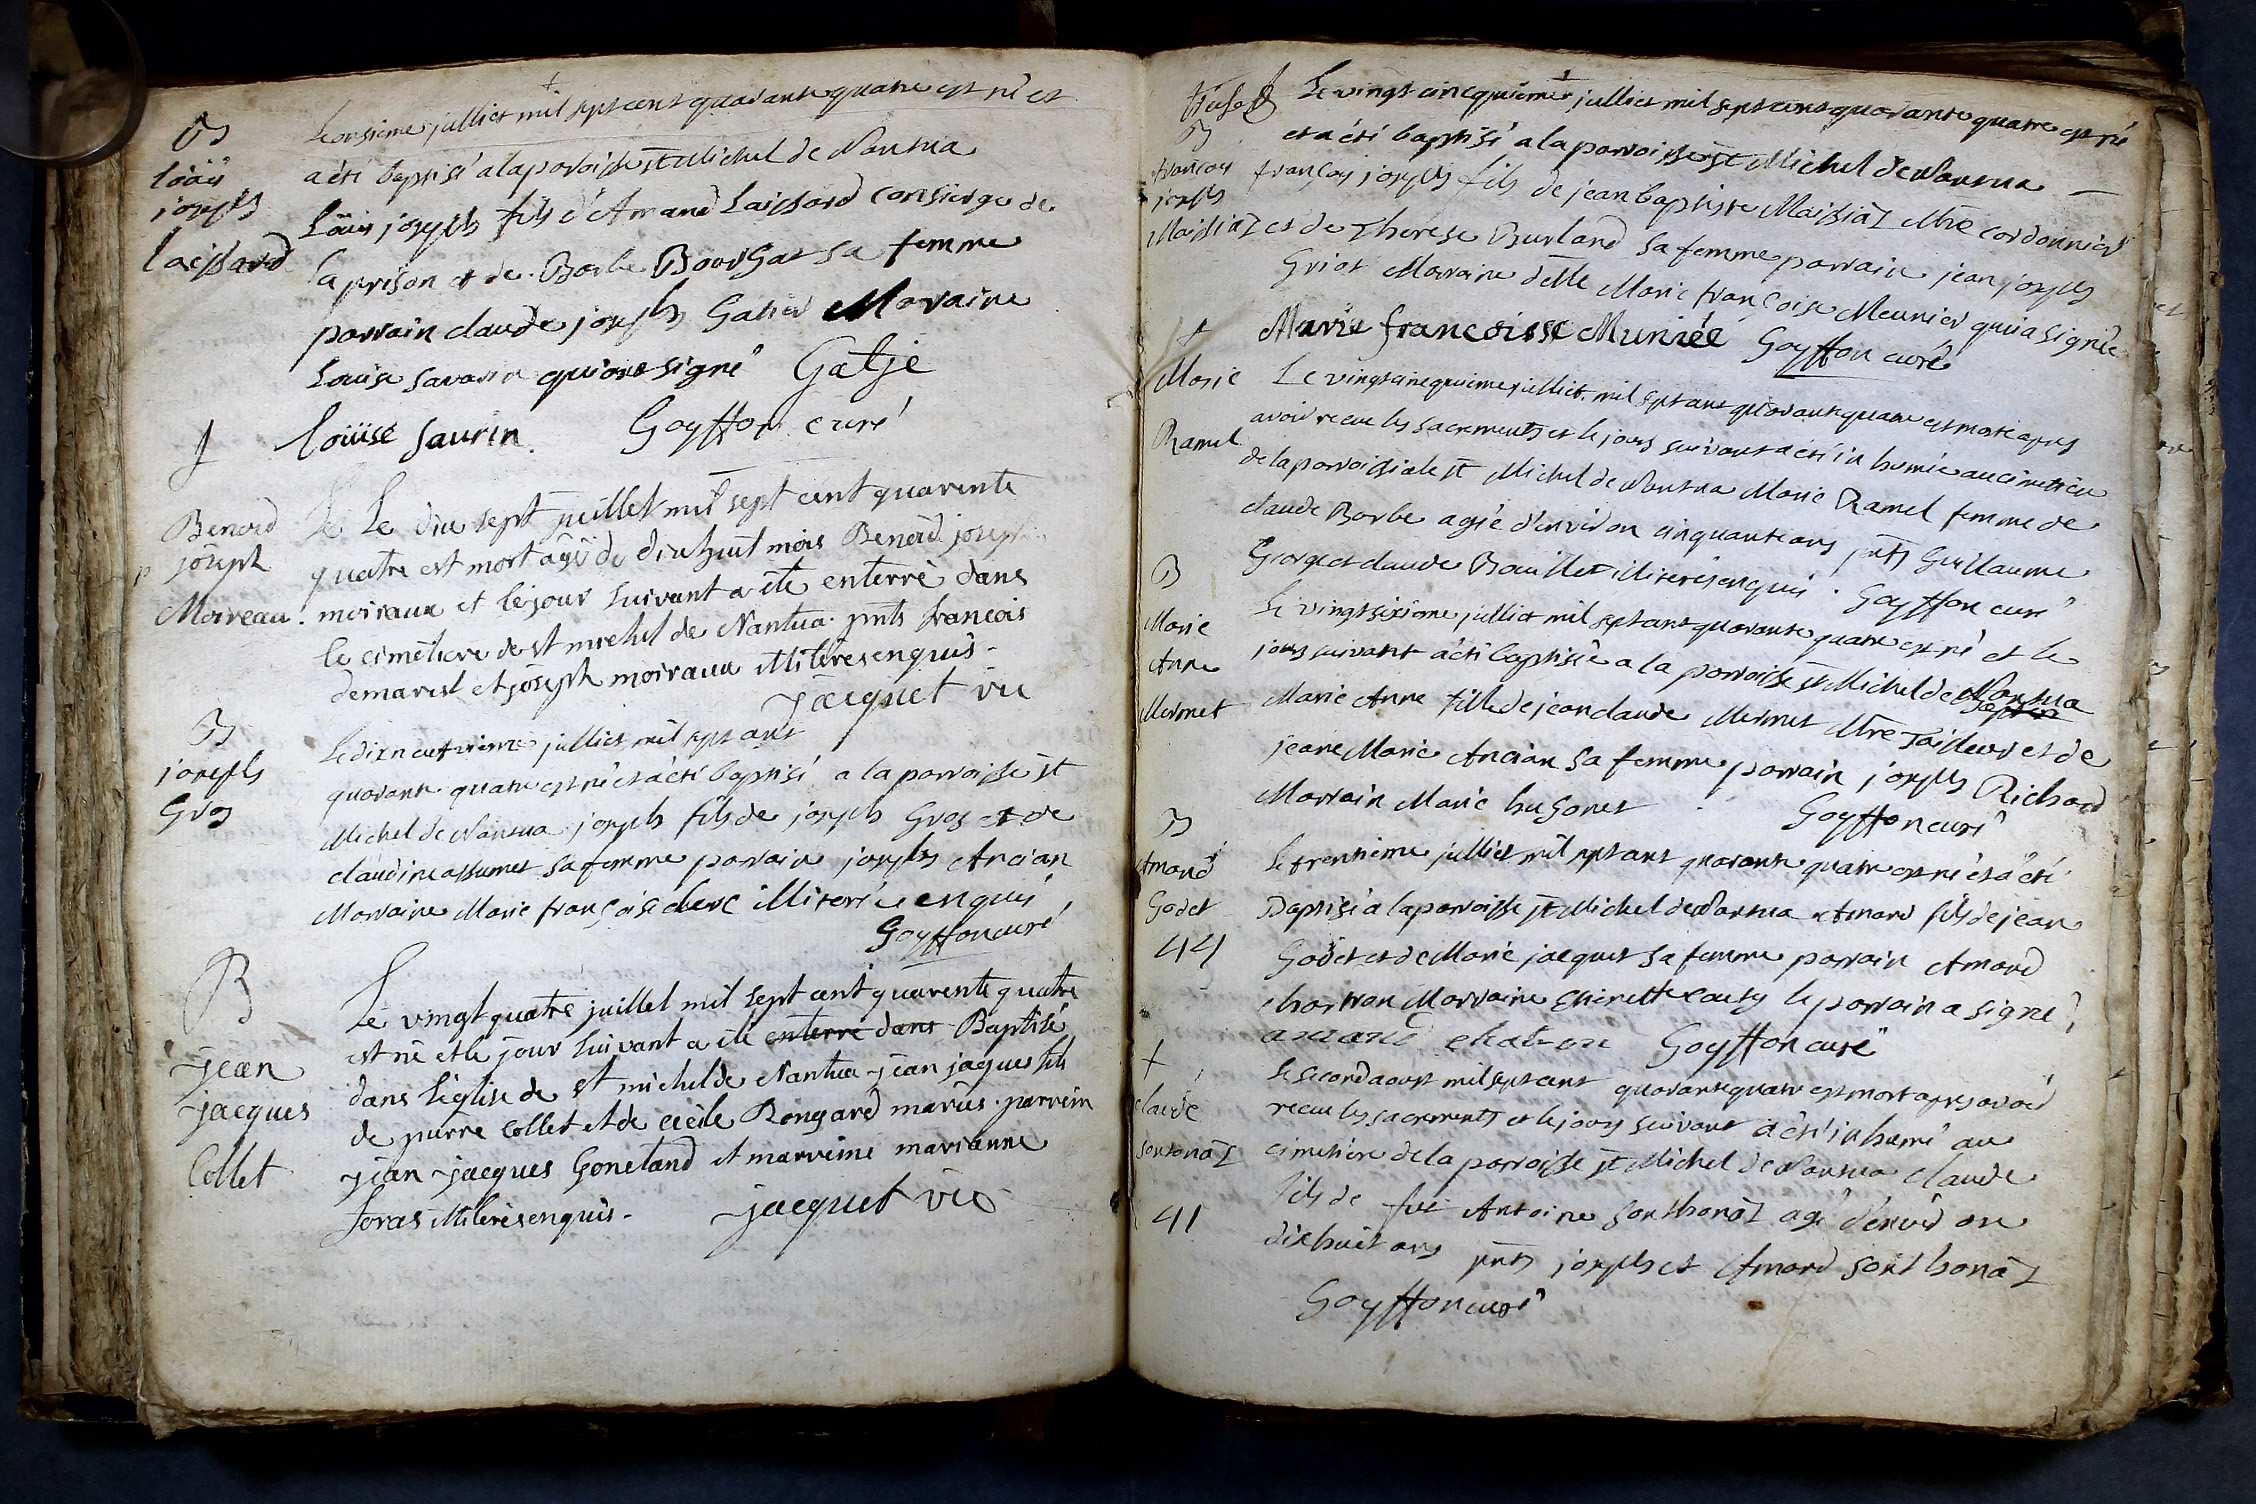 B
Loüis
joseph
Laissard
Le onsieme julliet mil sept cent quarante quatre est né et
a été baptisé a la paroisse st Michel de Nantua
Loüis joseph fils d'Amand Laissard consierge de
la prison et de Barbe Bourgat sa femme
parrain claude joseph Gatier Maraine
Louise savarin qui ont signé Gatje
loüise saurin. Goyffon curé
†
Benoid
joseph
Moireau.
Le Le dix sept juillet mil sept cent quarente
quatre est mort agé de dix huit mois Benoid joseph
moiraux et le jour suivant a ete enterré dans
le cimetiere de st michel de Nantua. pnts francois
demarest et joseph moiraux illiterés enquis.
jacquet vic
B
joseph
Gros
Le dixneuvieme julliet mil sept cent
quarante quatre est né et a été baptisé a la parroisse st
Michel de Nantua joseph fils de joseph Gros et de
claudine assumet sa femme parrain joseph Ancian
Marraine Marie françoise clerc illiterée enquis
Goyffon curé
B
jean
jacques
Collet
Le vingt quatre juillet mil sept cent quarente quatre
est né et le jour suivant a eté enterré dans Baptisé
dans l'eglise de st michel de Nantua jean jaques fils
de pierre Collet et de cecile Rongard mariés. parrein
jean jacques Goneland et marreine marianne
foras illiterés enquis. jacquet vic
B
françois
joseph
Maissiaz
Le vingt cincquieme julliet mil sept cent quarante quatre est né
et a été baptisé a la parroisse st Michel de Nantua
françois joseph fils de jean baptiste Maissiaz Mtre cordonnier
et de Therese Burland sa femme parrain jean joseph
Griot Marraine delle Marie françoise Meunier qui a signée
Marie francoisse Muniée Goyffon curé
†
Marie
Ramel
Le vingt cincquieme julliet mil sept cent quarante quatre est morte apres
avoir receu les sacrements et le jour suivant a été inhumée au cimetiere
de la parroissiale st Michel de Nantua Marie Ramel femme de
claude Barbe agée d'environ cinquante ans pnts Guillaume
George et claude Bouillet illiterés enquis. Goyffon curé
B
Marie
Anne
Mermet
Le vingt sixieme julliet mil sept cent quarante quatre est né et le
jour suivant a été baptisée a la parroisse st Michel de Nantua
Marie Anne fille de jean claude Mermet Mtre Tailleur et de
jeane Marie Ancian sa femme parrain joseph Richard
Marrain Marie hugonet Goyffon curé
B
Amand
Godet
44
Le trentieme julliet mil sept cent quarante quatre est né et a été
Baptisé a la parroisse st Michel de Nantua Amand fils de jean
Godet et de Marie jacquet sa femme parrain Amand
chartran Marraine Thinette causy le parrain a signé
amand chatron Goyffon curé
†
claude
sontonaz
41
Le second aoust mil sept cent quarante quatre est mort apres avoir
receu les sacrements et le jour suivant a été inhumé au
cimetiere de la parroisse st Michel de Nantua claude
fils de fut Antoine Sonthonaz agé d'environ
dixhuit ans pnts joseph et Amand sonthonaz
Goyffon curé